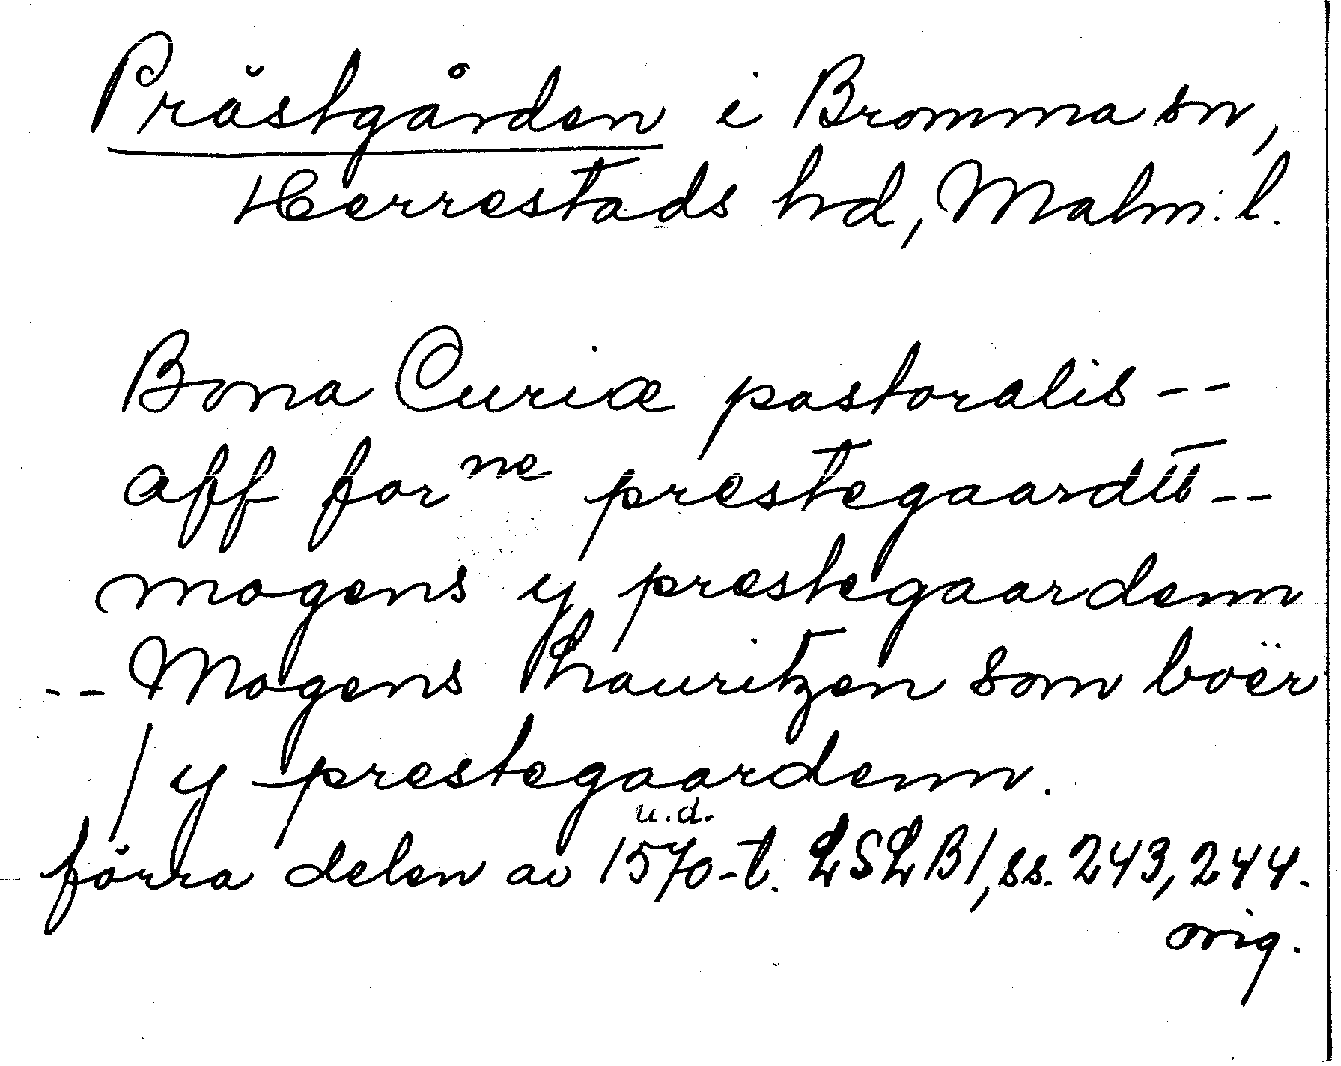 Prästgården i Bromma sn,
Herrestads hd, Malm. l.
Bona Curiæ pastoralis --
aff forne prestegaardtt --
mogens y prestegaardenn
-- Mogens Lauritzen som boër
/ y prestegaardenn.
u.d.
förra delen av 1570-t. LSLB1, ss. 243, 244.
orig.